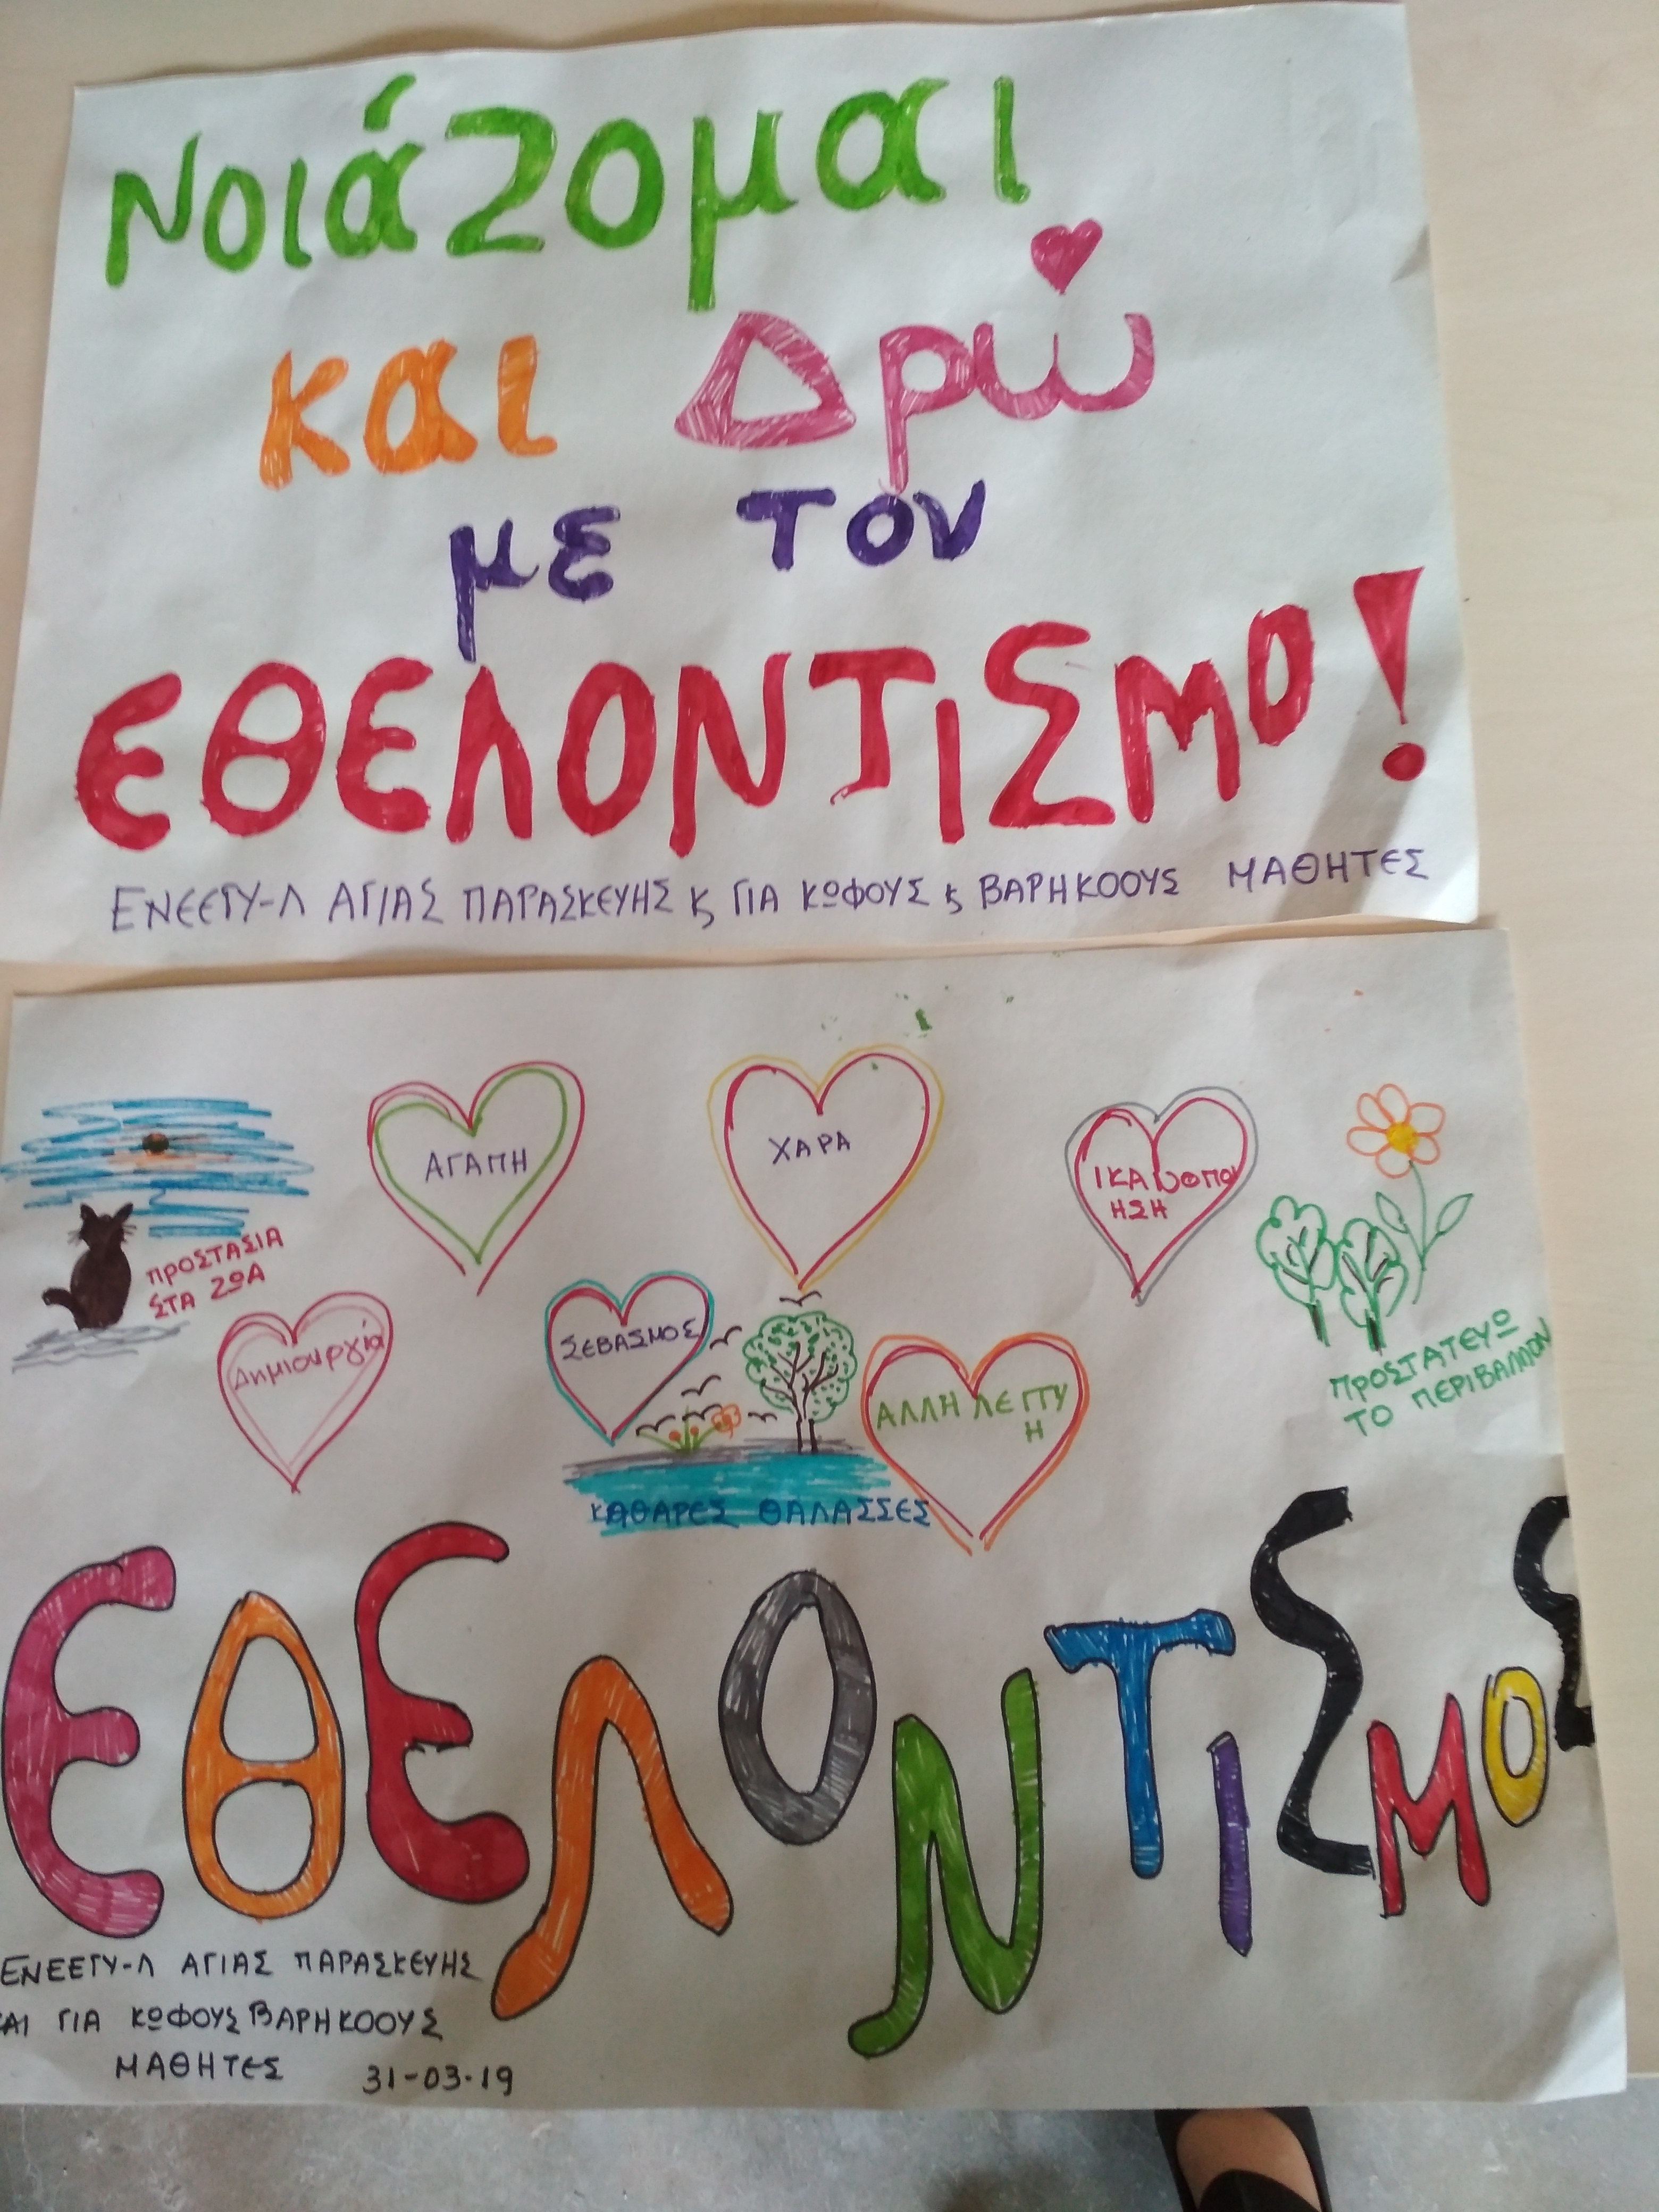 Νοιάζομαι
και Δρώ
με τον
ΕΘΕΛΟΝΤΙΣΜΟ!
ΕΝΕΕΓΥ-Λ ΑΓΙΑΣ ΠΑΡΑΣΚΕΥΗΣ ϗ ΓΙΑ ΚΩΦΟΥΣ ϗ ΒΑΡΗΚΟΟΥΣ ΜΑΘΗΤΕΣ
ΑΓΑΠΗ
ΧΑΡΑ
ΙΚΑΝΟΠΟΙ
ΗΣΗ
ΠΡΟΣΤΑΣΙΑ
ΣΤΑ ΖΩΑ
Δημιουργία
ΣΕΒΑΣΜΟΣ
ΑΛΛΗΛΕΓΓΥ
Η
ΠΡΟΣΤΑΤΕΥΩ
ΤΟ ΠΕΡΙΒΑΛΛΟΝ
ΚΑΘΑΡΕΣ ΘΑΛΑΣΣΕΣ
ΕΘΕΛΟΝΤΙΣΜΟΣ
ΕΝΕΕΓΥ-Λ ΑΓΙΑΣ ΠΑΡΑΣΚΕΥΗΣ
ΚΑΙ ΓΙΑ ΚΩΦΟΥΣ ΒΑΡΗΚΟΟΥΣ
ΜΑΘΗΤΕΣ 31-03-19